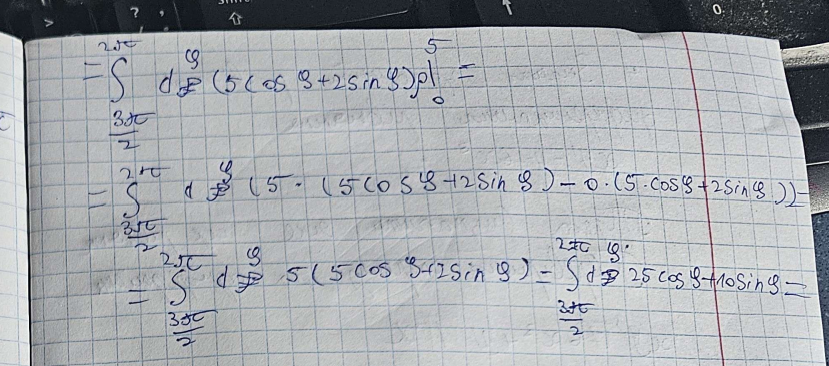 = ∫_{3π/2}^{2π} dφ (5cos φ+2sin φ)ρ|_0^5 =
= ∫_{3π/2}^{2π} dφ (5·(5cos φ+2sin φ)-0·(5·cosφ+2sinφ))=
= ∫_{3π/2}^{2π} dφ 5(5cos φ+2sin φ) = ∫_{3π/2}^{2π} dφ 25cos φ+10sin φ =